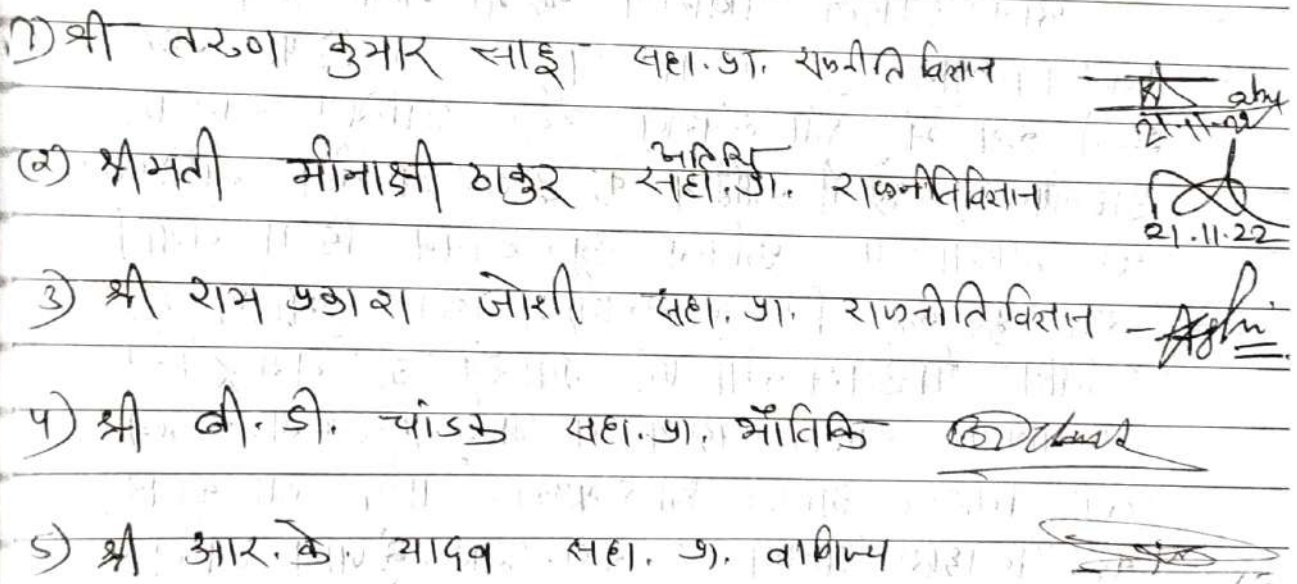 1) श्री तरुण कुमार साहू सहा. प्रा. राजनीति विज्ञान
21.11.22
(२) श्रीमती मीनाक्षी ठाकुर अतिथि सहा. प्रा. राजनीतिविज्ञान
21.11.22
3) श्री राम प्रकाश जोशी सहा. प्रा. राजनीति विज्ञान -
4) श्री बी. डी. चांडक सहा. प्रा. भौतिकि
5) श्री आर. के. यादव सहा. प्रा. वाणिज्य